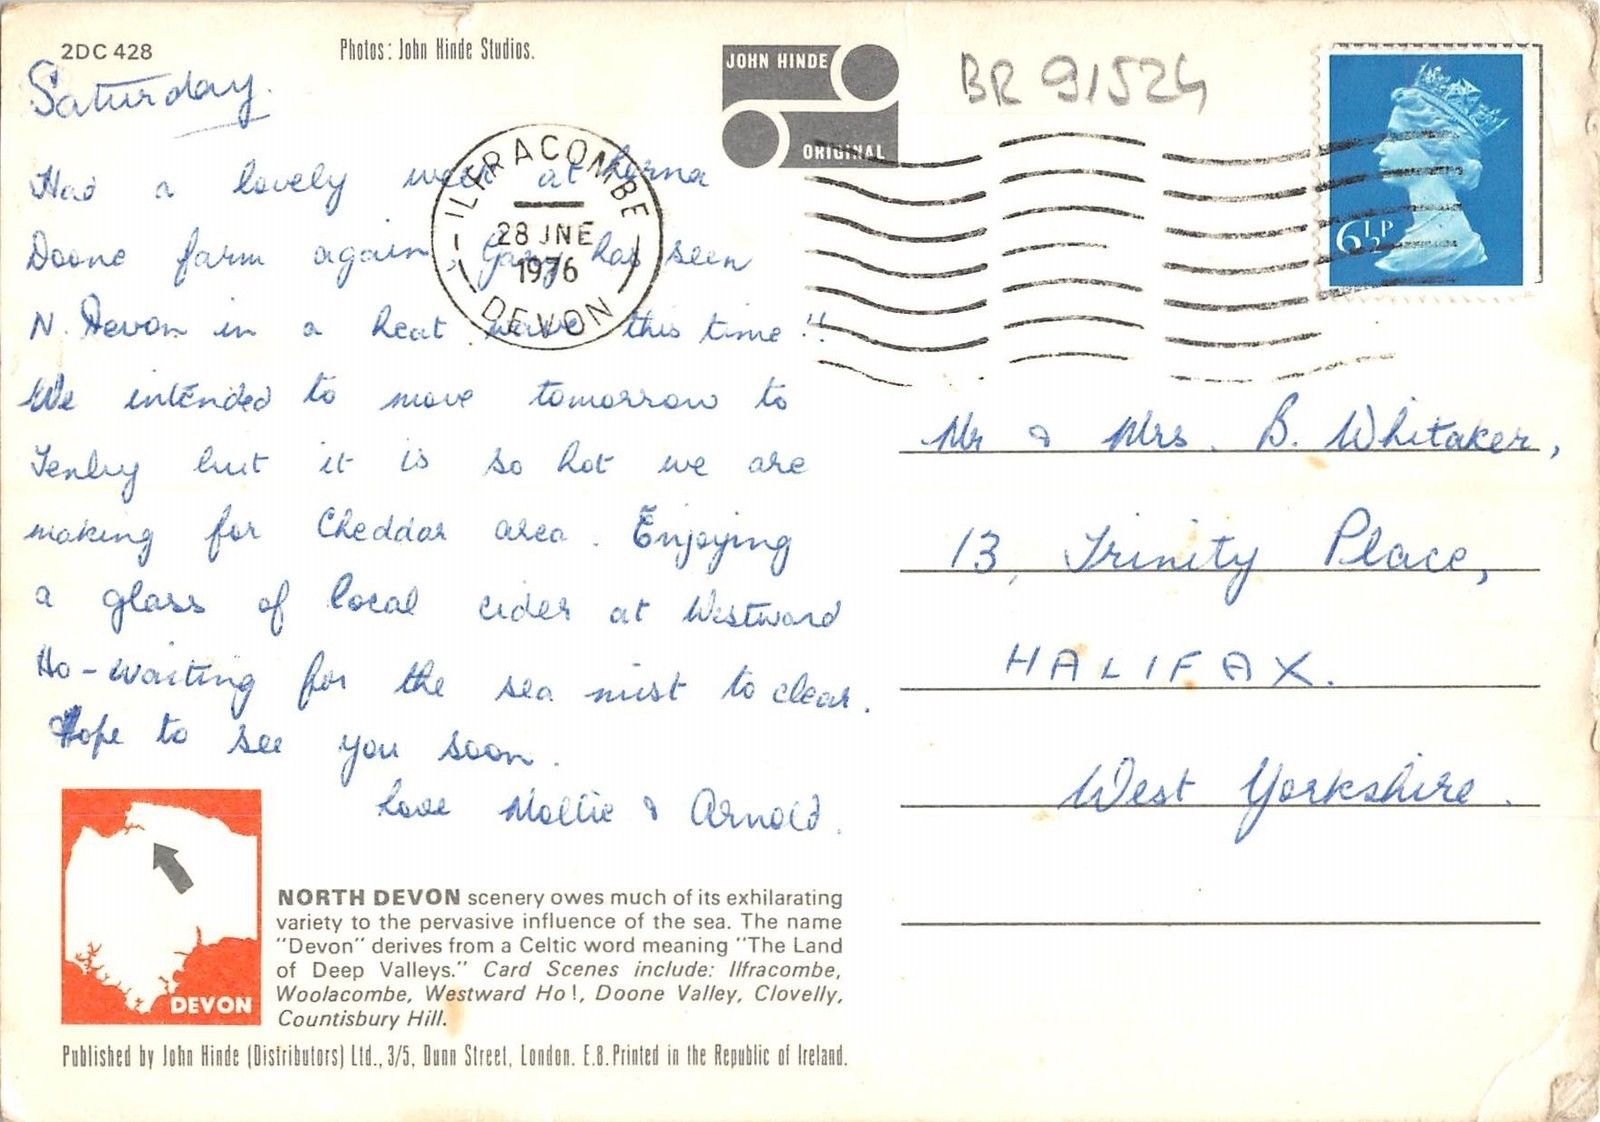 2DC 428
Photos: John Hinde Studios.
JOHN HINDE
ORIGINAL
BR 91524
ILFRACOMBE
28 JNE
1976
DEVON
6½P
Saturday.
Had a lovely week at Lorna
Doone farm again, Gary has seen
N. Devon in a heat wave this time!!
We intended to move tomorrow to
Tenby but it is so hot we are
making for Cheddar area. Enjoying
a glass of local cider at Westward
Ho - waiting for the sea mist to clear.
Hope to see you soon.
Love Mollie & Arnold.
Mr & Mrs. B. Whitaker,
13, Trinity Place,
HALIFAX.
West Yorkshire.
DEVON
NORTH DEVON scenery owes much of its exhilarating
variety to the pervasive influence of the sea. The name
"Devon" derives from a Celtic word meaning "The Land
of Deep Valleys." Card Scenes include: Ilfracombe,
Woolacombe, Westward Ho!, Doone Valley, Clovelly,
Countisbury Hill.
Published by John Hinde (Distributors) Ltd., 3/5, Dunn Street, London. E.8. Printed in the Republic of Ireland.